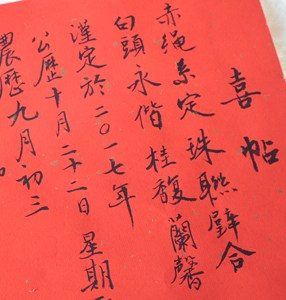 喜帖
赤绳系定珠聯璧合
白頭永偕桂馥蘭馨
謹定於二〇一七年
公歷十月二十二日星期
農歷九月初三